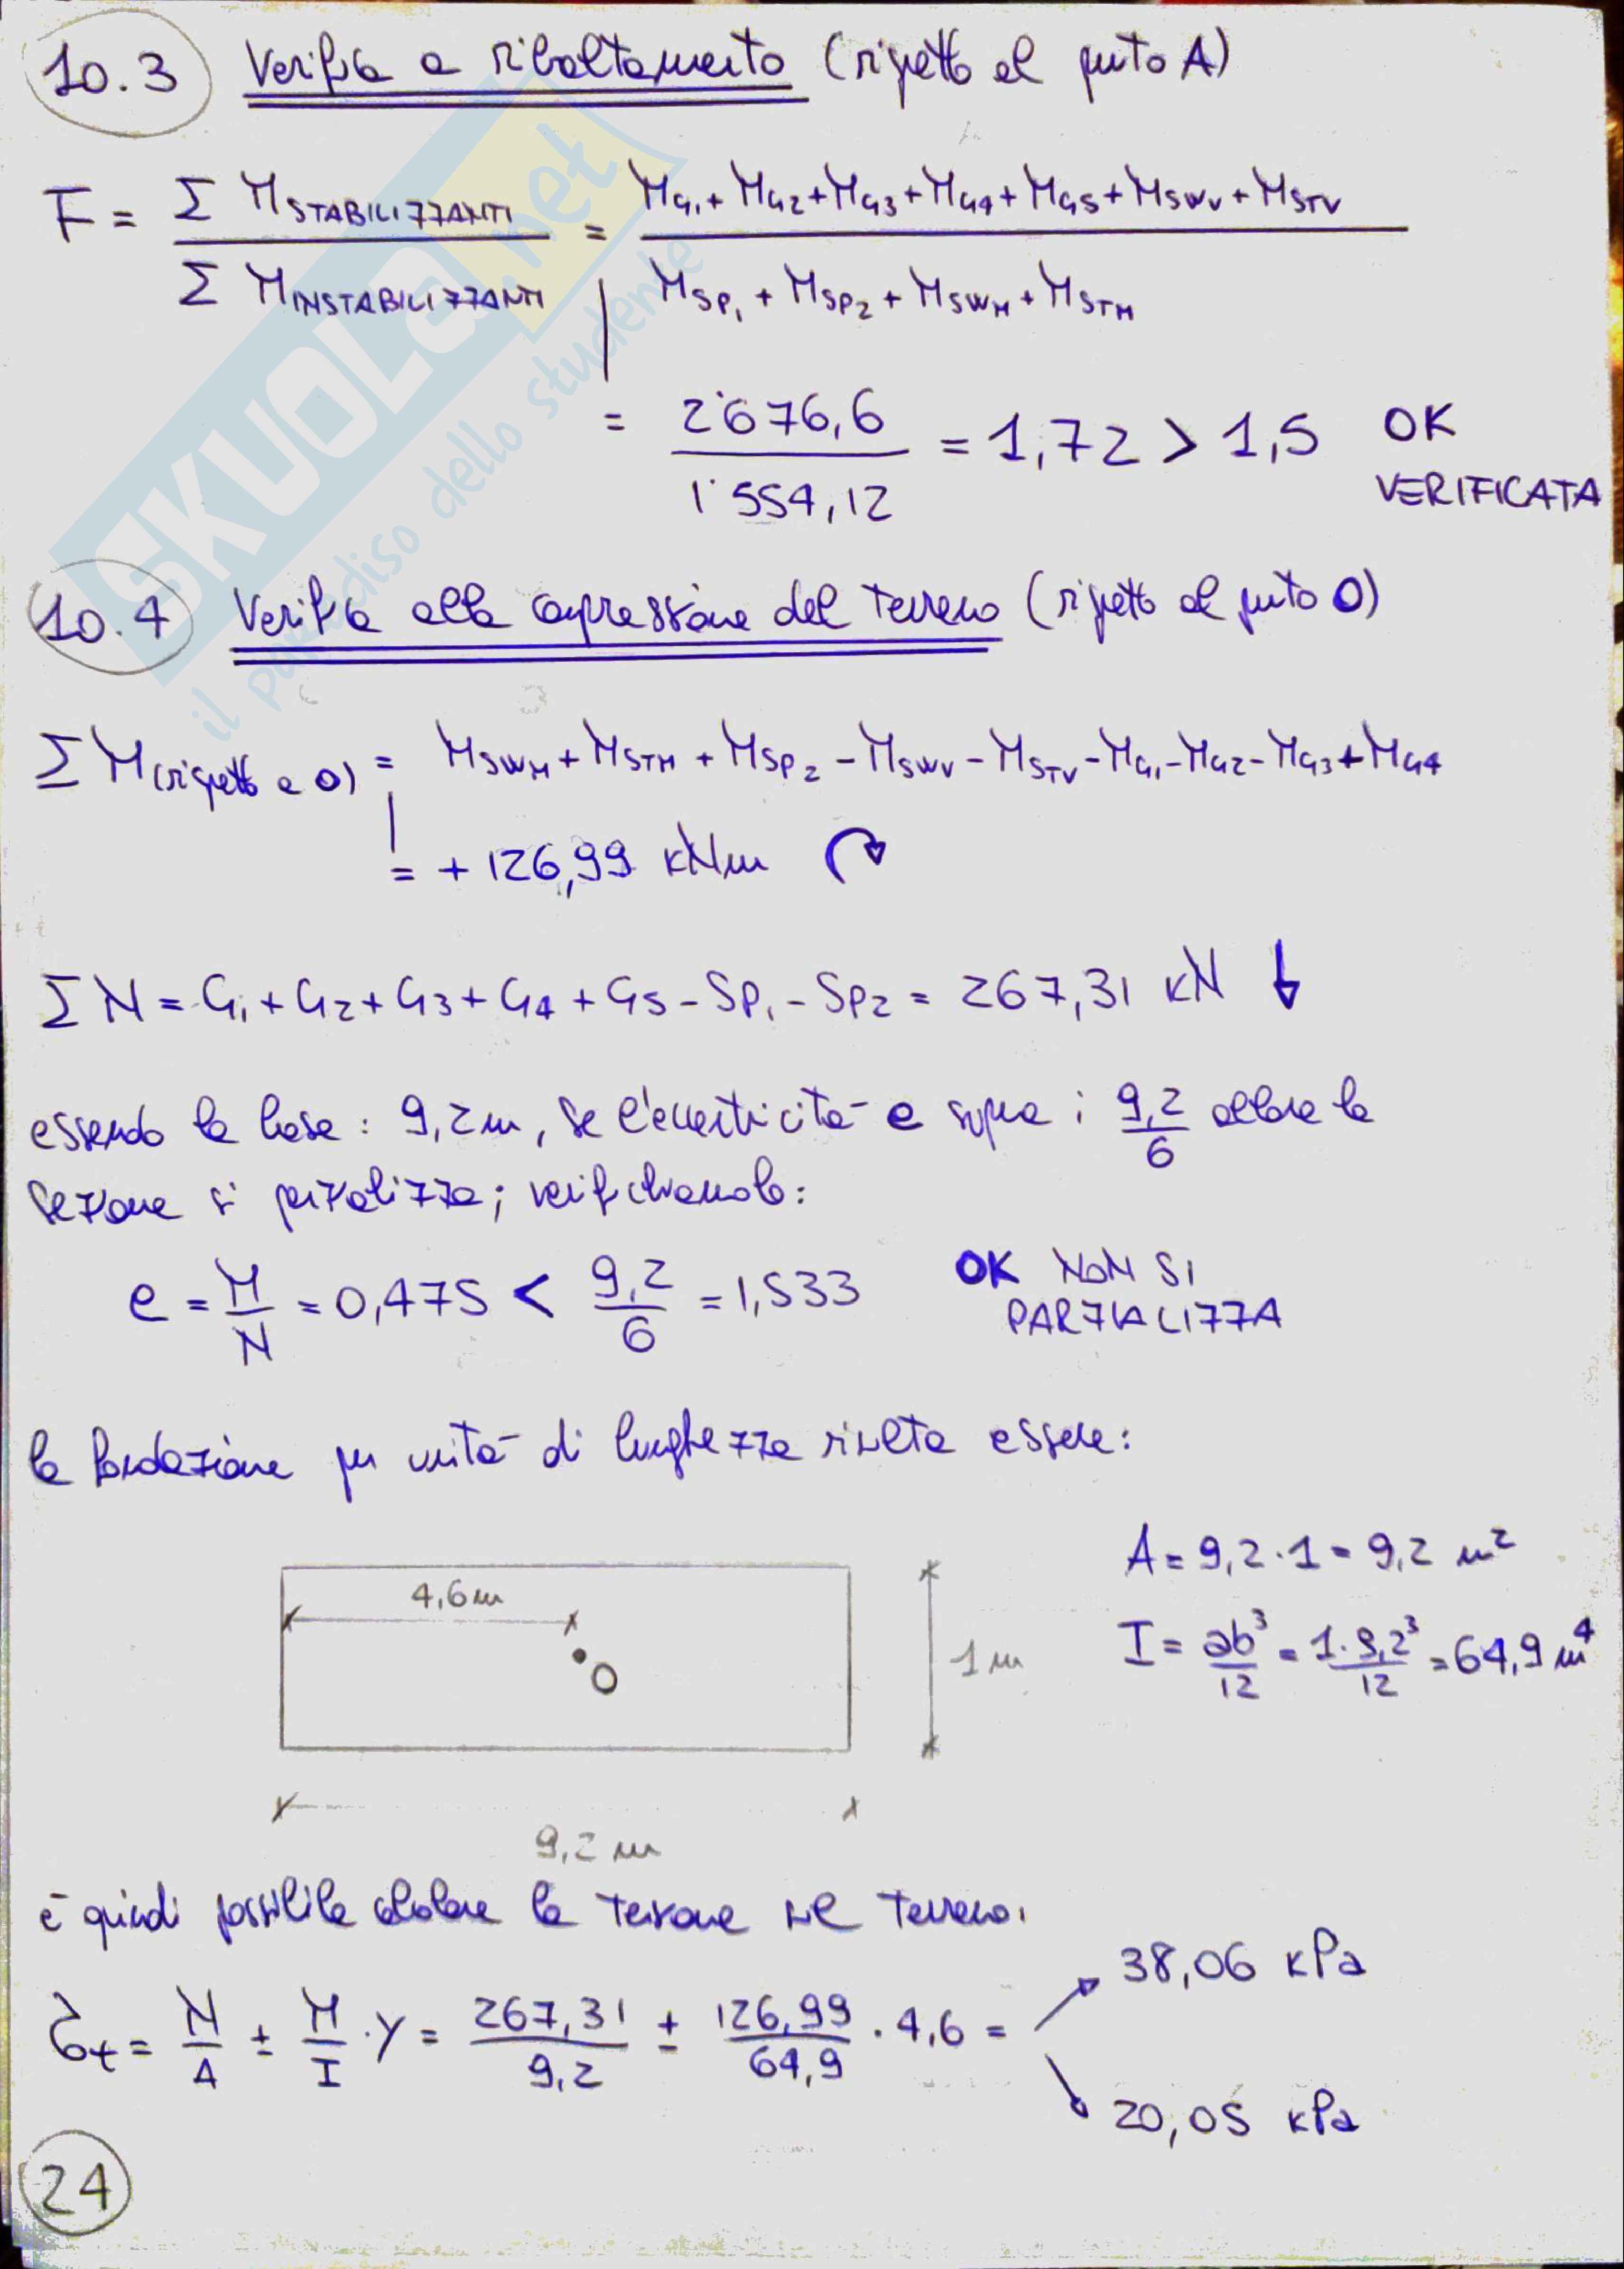 10.3 Verifica a ribaltamento (rispetto al punto A)
F = Σ M STABILIZZANTI / Σ M INSTABILIZZANTI = (MG1 + MG2 + MG3 + MG4 + MG5 + MSWV + MSTV) / (MSP1 + MSP2 + MSWH + MSTH)
= 2'676,6 / 1'554,12 = 1,72 > 1,5 OK
VERIFICATA
SKUOLA.net
il paradiso dello studente
10.4 Verifica alla compressione del terreno (rispetto al punto O)
Σ M (rispetto a O) = MSWH + MSTH + MSP2 - MSWV - MSTV - MG1 - MG2 - MG3 + MG4
= + 126,99 kNm
Σ N = G1 + G2 + G3 + G4 + G5 - SP1 - SP2 = 267,31 kN ↓
essendo la base: 9,2 m, se l'eccentricità e supera i 9,2/6 allora la
sezione si parzializza; verifichiamolo:
e = M/N = 0,475 < 9,2/6 = 1,533 OK NON SI
PARZIALIZZA
la fondazione per unità di lunghezza risulta essere:
A = 9,2 · 1 = 9,2 m²
4,6 m
I = ab³/12 = 1 · 9,2³/12 = 64,9 m⁴
O
1 m
9,2 m
è quindi possibile calcolare la tensione nel terreno.
σt = N/A ± M/I · y = 267,31/9,2 ± 126,99/64,9 · 4,6 =
38,06 kPa
20,05 kPa
24